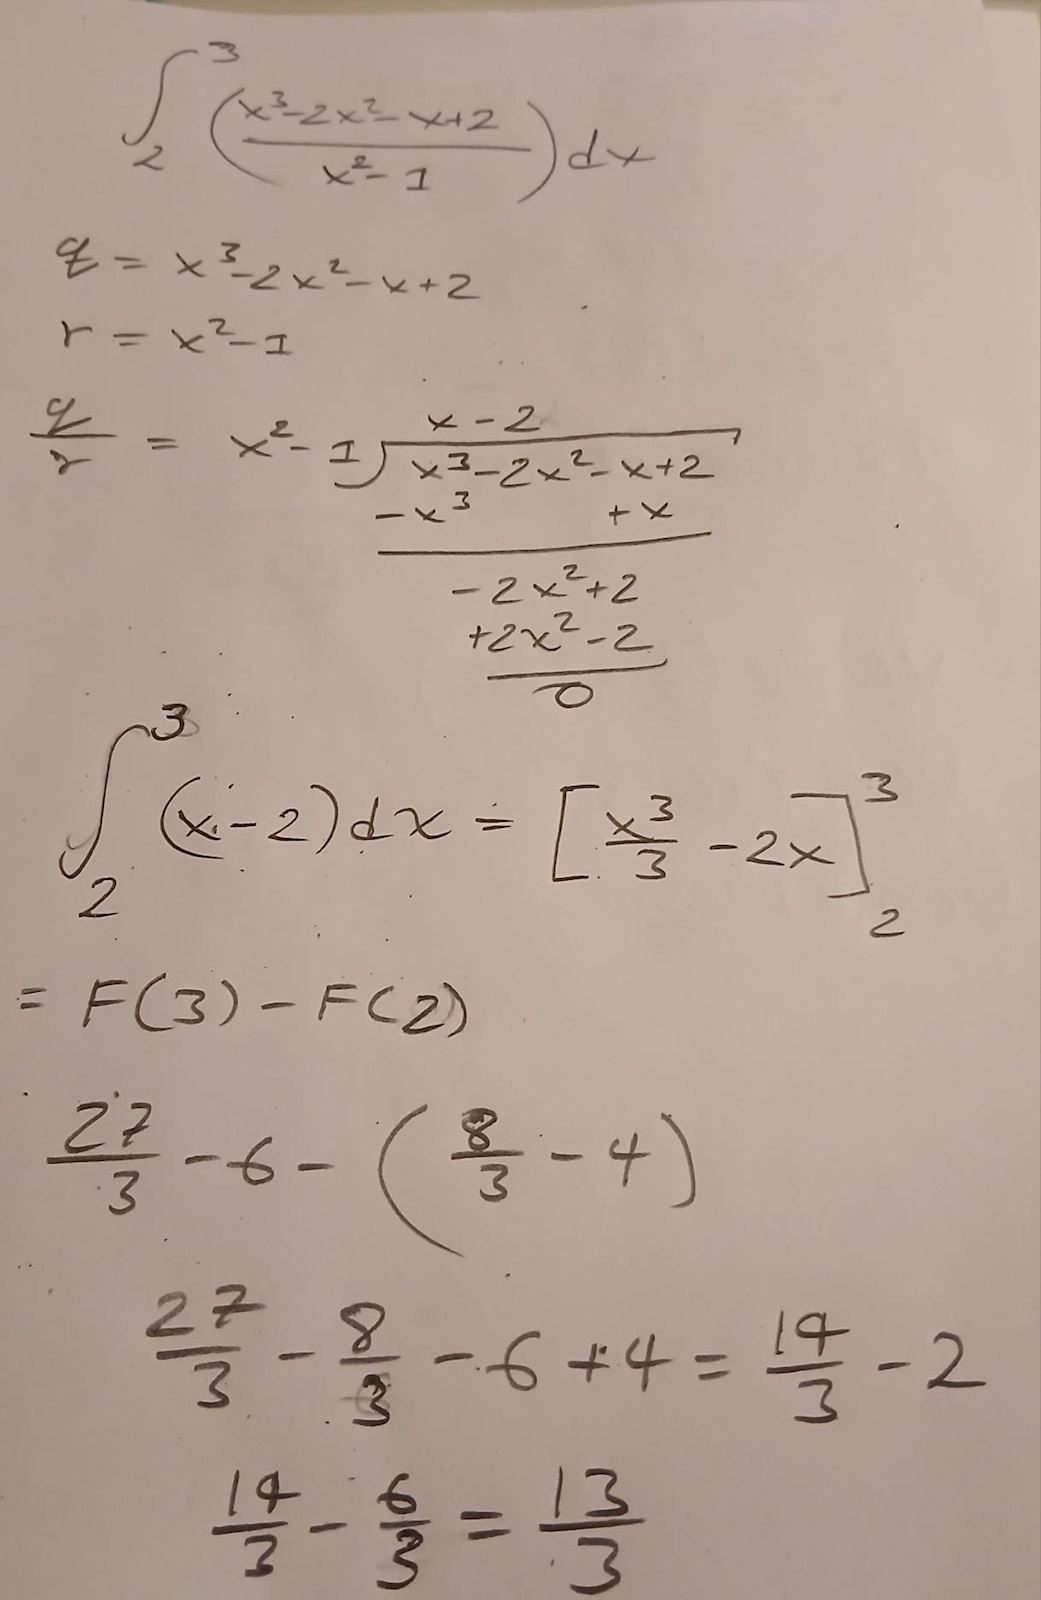 ∫₂³ ((x³-2x²-x+2)/(x²-1)) dx
q = x³-2x²-x+2
r = x²-1
x-2
q/r = x²-1 ) x³-2x²-x+2
-x³ +x
-2x²+2
+2x²-2
0
∫₂³ (x-2)dx = [x³/3 - 2x]₂³
= F(3)-F(2)
27/3 - 6 - (8/3 - 4)
27/3 - 8/3 - 6 + 4 = 19/3 - 2
19/3 - 6/3 = 13/3